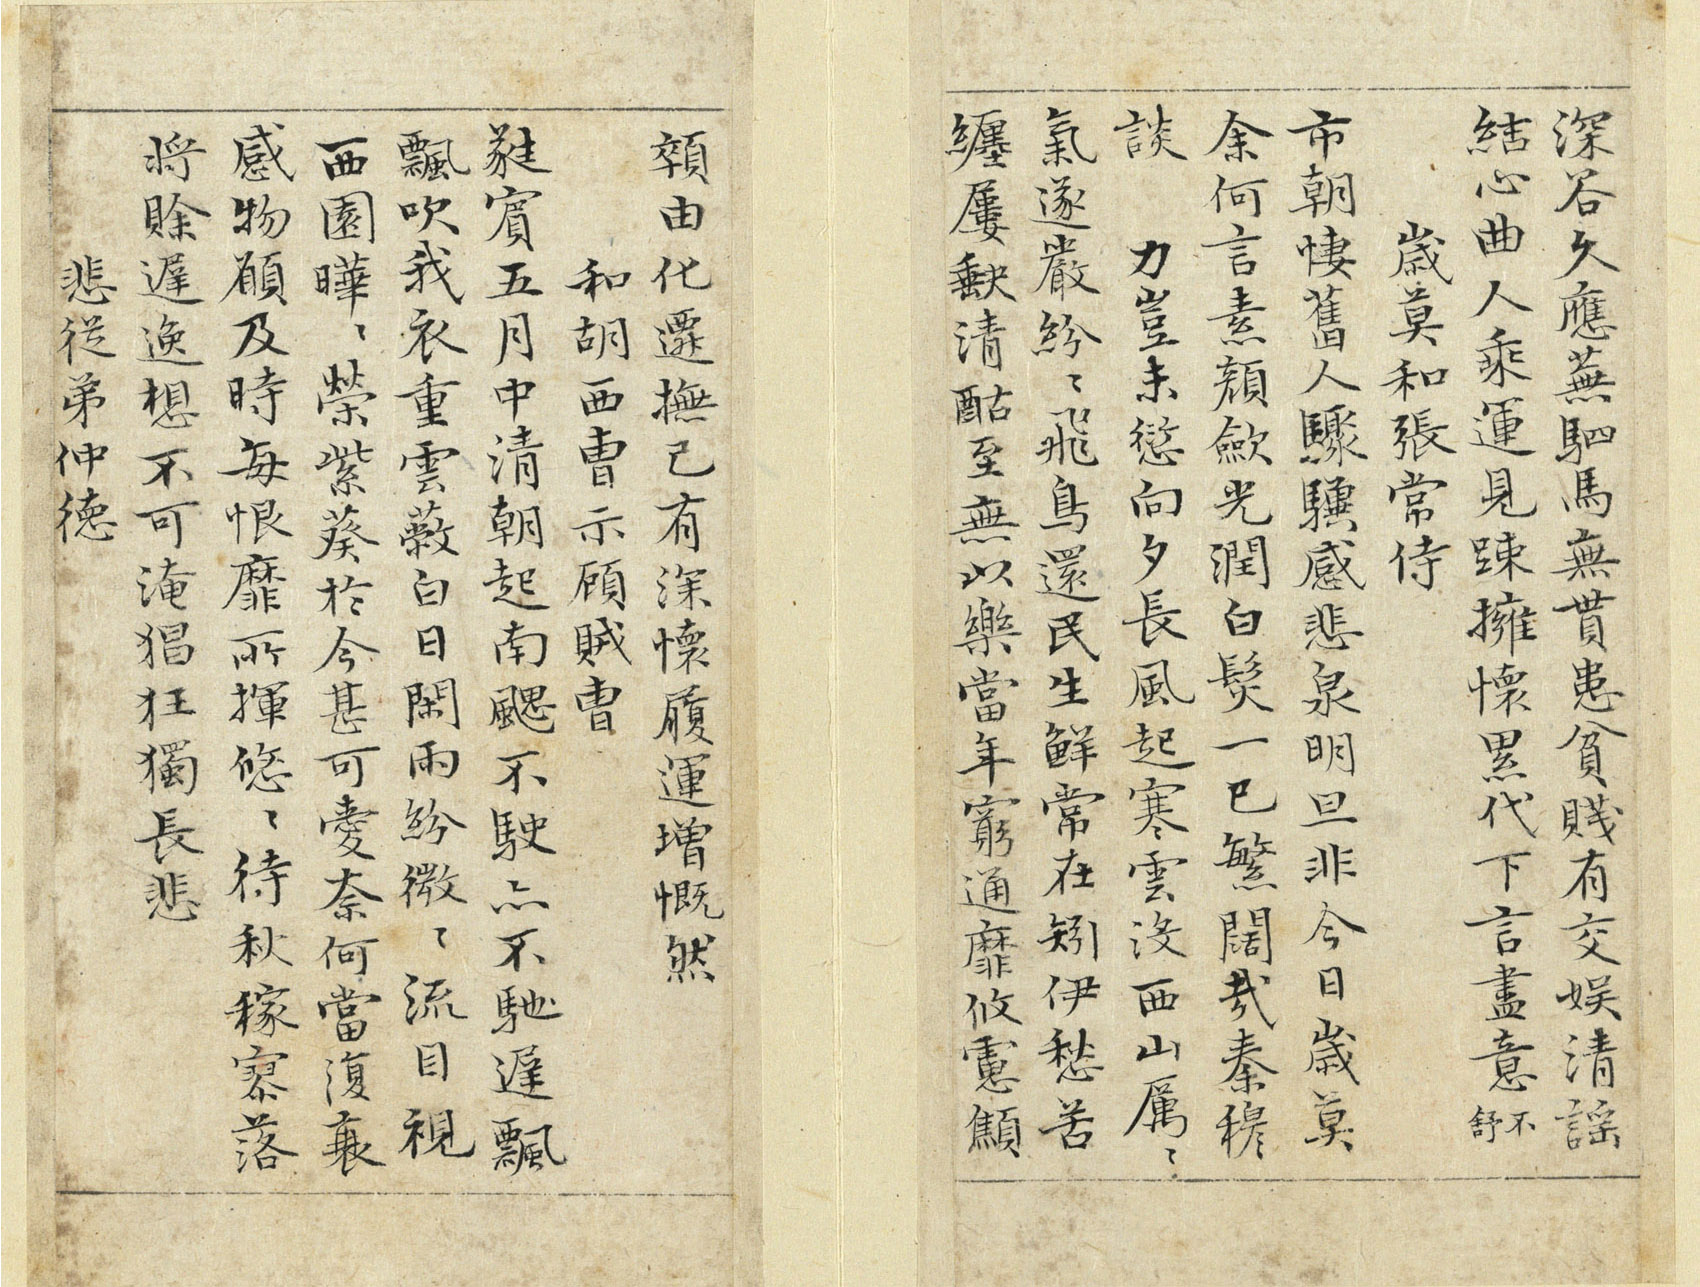 深谷久應蕪駟馬無貰患貧賤有交娱清謡
結心曲人乘運見踈擁懷累代下言盡意不舒
歲莫和張常侍
市朝悽舊人驟驥感悲泉明旦非今日歲莫
余何言素顔歛光潤白髮一已繁闊㦲秦穆
談 力豈未愆向夕長風起寒雲没西山厲〻
氣遂嚴紛〻飛鳥還民生鮮常在矧伊愁苦
纏屢缺清酤至無以樂當年窮通靡攸慮顦
顇由化遷撫己有深懷履運増慨然
和胡西曹示顧賊曹
蕤賓五月中清朝起南颸不駛亦不馳遲飄
飄吹我衣重雲蔽白日閑雨紛微〻流目視
西園曄〻榮紫葵於今甚可愛奈何當復衰
感物願及時每恨靡所揮悠〻待秋稼寥落
將賖遲逸想不可淹猖狂獨長悲
悲從弟仲德